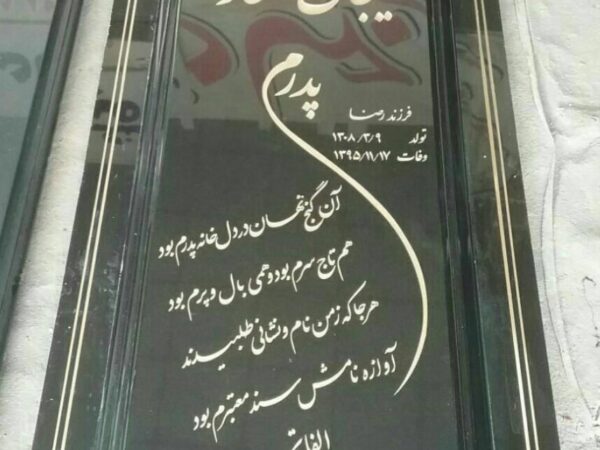 پدرم
فرزند رضا
تولد ۱۳۰۸/۳/۹
وفات ۱۳۹۵/۱۱/۱۷
آن گنج نهان در دل خانه پدرم بود
هم تاج سرم بود و همی بال و پرم بود
هر جا که زمن نام و نشانی طلبیدند
آوازه نامش سند معتبرم بود